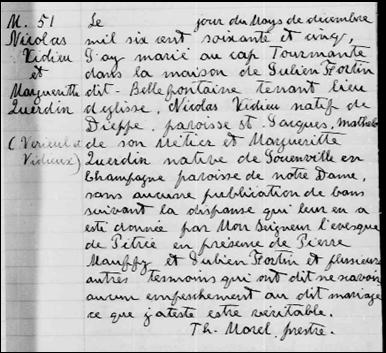 M. 51
Nicolas
Vidieu
et
Margueritte
Querdin
(Verieul et
Vidieux)
Le jour du Moys de décembre
mil six cent soixante et cinq,
J'ay marié au cap Tourmante
dans la maison de Julien Fortin
dit - Bellefontaine tenant lieu
d'eglise, Nicolas Vidieu natif de
Dieppe, paroisse St Jacques, mathelot
de son Métier et Margueritte
Querdin native de Jouenville en
Champagne paroisse de notre Dame,
sans aucune publication de bans
suivant la dispanse qui leur en a
esté donnée par Mon Seigneur l'evesque
de Pétrée en présence de Pierre
Mauffy et Julien Fortin et plusieurs
autres tesmoins qui ont dit ne scavoir
aucun empeschement au dit mariage
ce que j'ateste estre véritable.
Th. Morel, prestre.